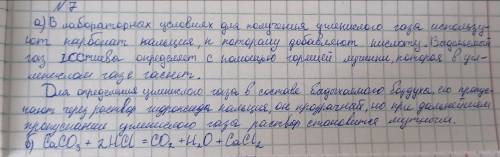 №7
а) В лабораторных условиях для получения углекислого газа использу-
ют карбонат кальция, к которому добавляют кислоту. Выделение
газ определяют с помощью горящей лучины, которая в уг-
лекислом газе гаснет.
Для определения углекислого газа в составе выдыхаемого воздуха, его пропус-
кают через раствор гидроксида кальция, он прозрачный, но при дальнейшем
пропускании углекислого газа раствор становится мутным.
б) CaCO₃ + 2HCl = CO₂ + H₂O + CaCl₂